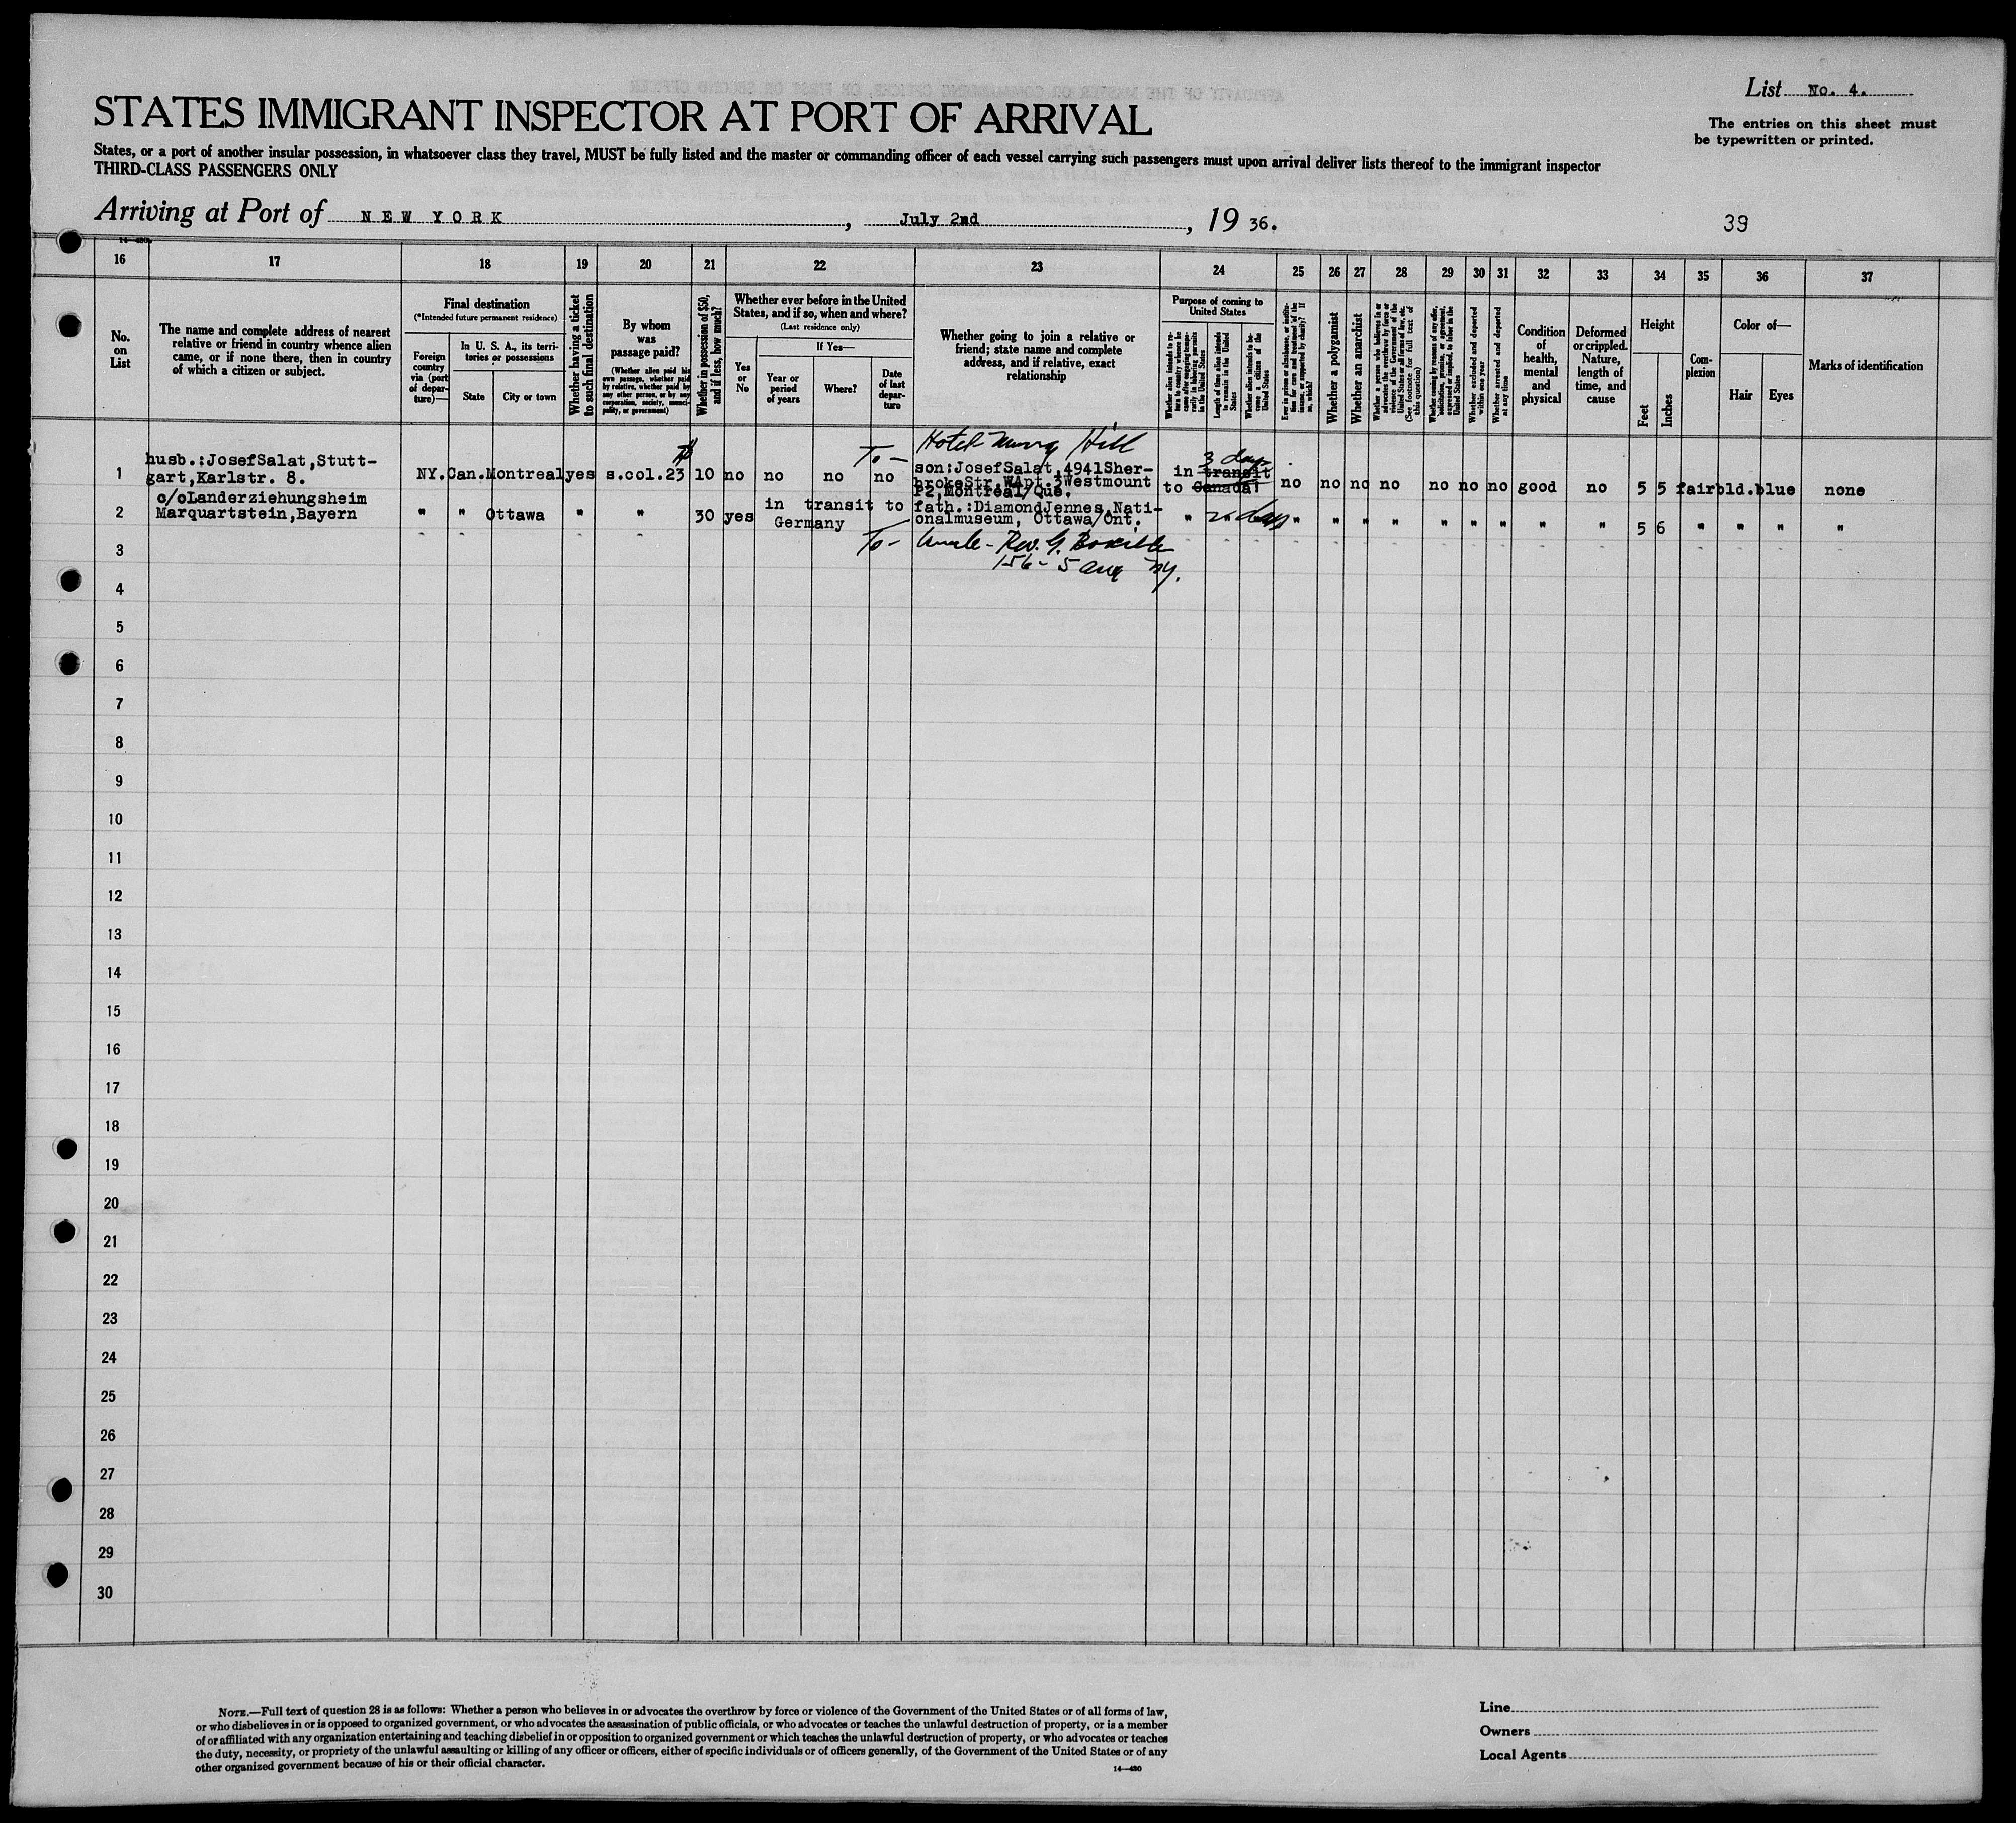 List No. 4.
STATES IMMIGRANT INSPECTOR AT PORT OF ARRIVAL
The entries on this sheet must
be typewritten or printed.
States, or a port of another insular possession, in whatsoever class they travel, MUST be fully listed and the master or commanding officer of each vessel carrying such passengers must upon arrival deliver lists thereof to the immigrant inspector
THIRD-CLASS PASSENGERS ONLY
Arriving at Port of NEW YORK, July 2nd, 1936.
39
16 17 18 19 20 21 22 23 24 25 26 27 28 29 30 31 32 33 34 35 36 37
No. on List
The name and complete address of nearest relative or friend in country whence alien came, or if none there, then in country of which a citizen or subject.
Final destination
(*Intended future permanent residence)
Foreign country via (port of departure)—
In U. S. A., its territories or possessions
State
City or town
Whether having a ticket to such final destination
By whom was passage paid?
(Whether alien paid his own passage, whether paid by relative, whether paid by any other person, or by any corporation, society, municipality, or government)
Whether in possession of $50, and if less, how much?
Whether ever before in the United States, and if so, when and where?
(Last residence only)
Yes or No
If Yes—
Year or period of years
Where?
Date of last departure
Whether going to join a relative or friend; state name and complete address, and if relative, exact relationship
Purpose of coming to United States
Whether alien intends to return to country whence he came after engaging temporarily in laboring pursuits in the United States
Length of time alien intends to remain in the United States
Whether alien intends to become a citizen of the United States
Ever in prison or almshouse, or institution for care and treatment of the insane, or supported by charity? If so, which?
Whether a polygamist
Whether an anarchist
Whether a person who believes in or advocates the overthrow by force or violence of the Government of the United States or all forms of law, etc. (See footnote for full text of this question)
Whether coming by reason of any offer, solicitation, promise, or agreement, expressed or implied, to labor in the United States
Whether excluded and deported within one year
Whether arrested and deported at any time
Condition of health, mental and physical
Deformed or crippled. Nature, length of time, and cause
Height
Feet
Inches
Complexion
Color of—
Hair
Eyes
Marks of identification
To - Hotel Murray Hill
3 days
1 husb.:JosefSalat,Stutt-
gart,Karlstr. 8.
NY.Can.Montreal yes s.col.23 $ 10 no no no no
son:JosefSalat,4941Sher-
brokeStr.WApt.3Westmount
P2,Montreal/Que.
in transit
to Canada
no no no no no no no good no 5 5 fair bld. blue none
2 c/oLanderziehungsheim
Marquartstein,Bayern
" " Ottawa " " 30 yes in transit to
Germany
fath.:DiamondJennes,Nati-
onalmuseum, Ottawa/Ont.
" 2 days " " " " " " " " " 5 6 " " " "
To - Uncle - Rev. G.
156 - 5 Ave NY.
3
4
5
6
7
8
9
10
11
12
13
14
15
16
17
18
19
20
21
22
23
24
25
26
27
28
29
30
NOTE.—Full text of question 28 is as follows: Whether a person who believes in or advocates the overthrow by force or violence of the Government of the United States or of all forms of law,
or who disbelieves in or is opposed to organized government, or who advocates the assassination of public officials, or who advocates or teaches the unlawful destruction of property, or is a member
of or affiliated with any organization entertaining and teaching disbelief in or opposition to organized government or which teaches the unlawful destruction of property, or who advocates or teaches
the duty, necessity, or propriety of the unlawful assaulting or killing of any officer or officers, either of specific individuals or of officers generally, of the Government of the United States or of any
other organized government because of his or their official character.
14—430
Line
Owners
Local Agents